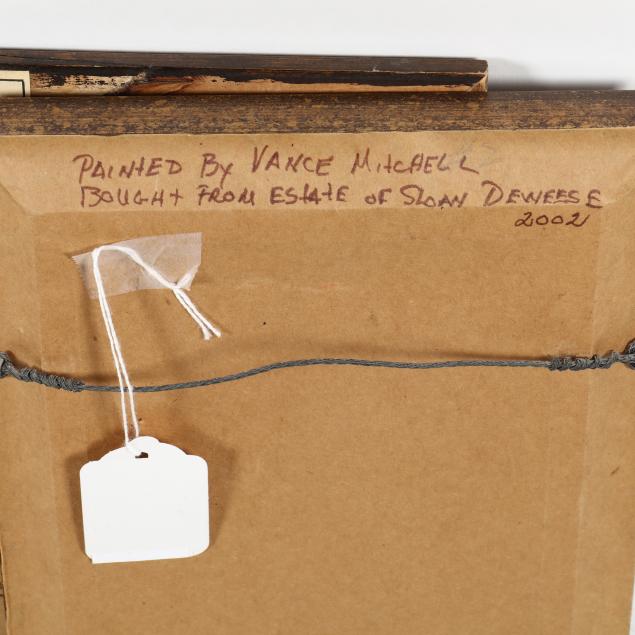 PAINTED BY VANCE MITCHELL
BOUGHT FROM ESTATE OF SLOAN DEWEESE
2002